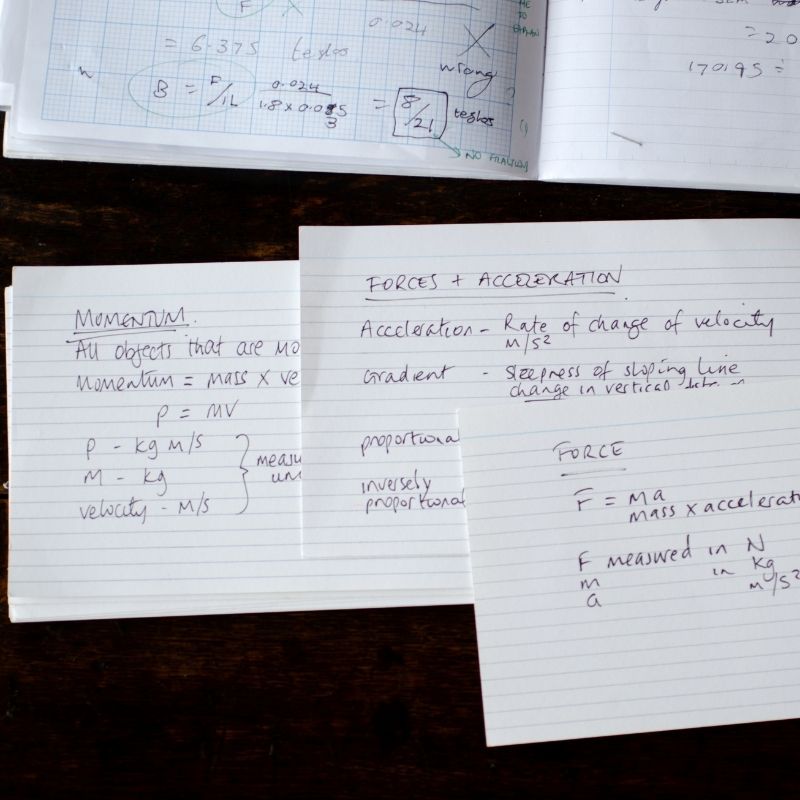 F
0.024
= 6.375 teslas
wrong
B = F/IL 0.024
1.8 x 0.035
3
= 8/21 teslas
= 20
170.95 =
MOMENTUM.
All objects that are mo
Momentum = mass x ve
P = MV
P - kg m/s
M - kg
velocity - m/s
measu
uni
FORCES + ACCELERATION
Acceleration - Rate of change of velocity
m/s²
Gradient - Steepness of sloping line
change in vertical
proportional
inversely
proportional
FORCE
F = ma
mass x accelerati
F measured in N
m in kg
a m/s²